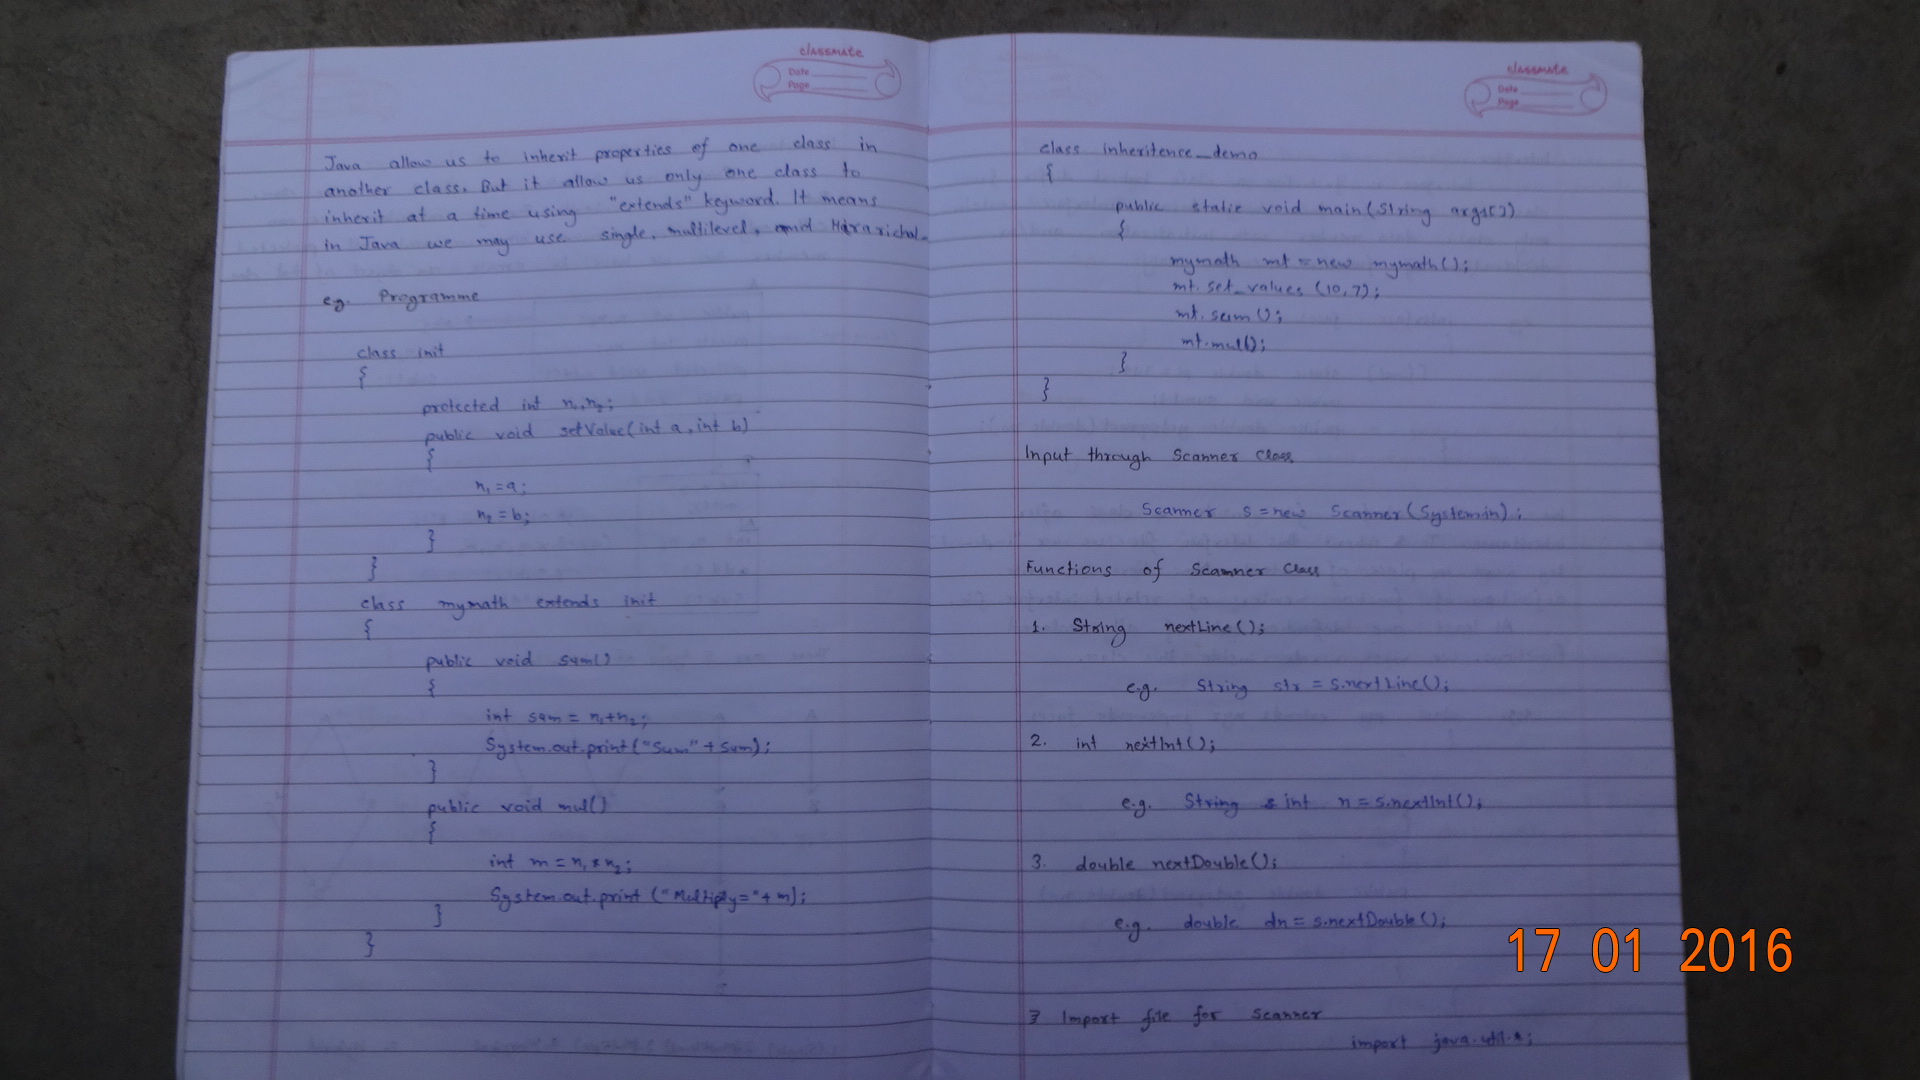 classmate
Date
Page
Java allow us to inherit properties of one class in
another class. But it allow us only one class to
inherit at a time using "extends" keyword. It means
in Java we may use single, multilevel, and Hirarichal.
eg. Programme
class init
{
protected int n₁,n₂;
public void setValue(int a, int b)
{
n₁ = a;
n₂ = b;
}
}
class mymath extends init
{
public void sum()
{
int sum = n₁+n₂;
System.out.print("Sum" + sum);
}
public void mul()
{
int m = n₁ * n₂;
System.out.print ("Multiply=" + m);
}
}
classmate
Date
Page
class inheritence_demo
{
public static void main(String args[])
{
mymath mt = new mymath();
mt.set_values (10,7);
mt.sum();
mt.mul();
}
}
Input through Scanner Class
Scanner s = new Scanner(System.in);
Functions of Scanner Class
1. String nextLine();
e.g. String str = s.nextLine();
2. int nextInt();
e.g. String int n = s.nextInt();
3. double nextDouble();
e.g. double dn = s.nextDouble();
Import file for Scanner
import java.util.*;
17 01 2016